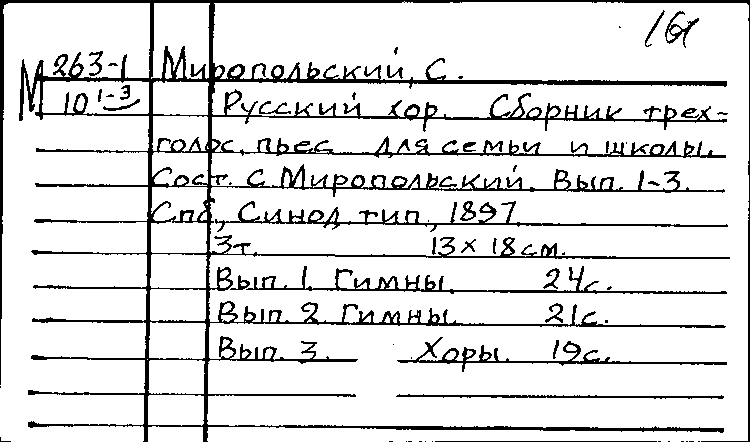 М 263-1 Миропольский, С.
10 1-3 Русский хор. Сборник трех-
голос. пьес для семьи и школы.
Сост. С. Миропольский. Вып. 1-3.
Спб., Синод. тип., 1897.
3т. 13 х 18 см.
Вып. 1. Гимны. 24с.
Вып. 2 Гимны. 21с.
Вып. 3. Хоры. 19с.